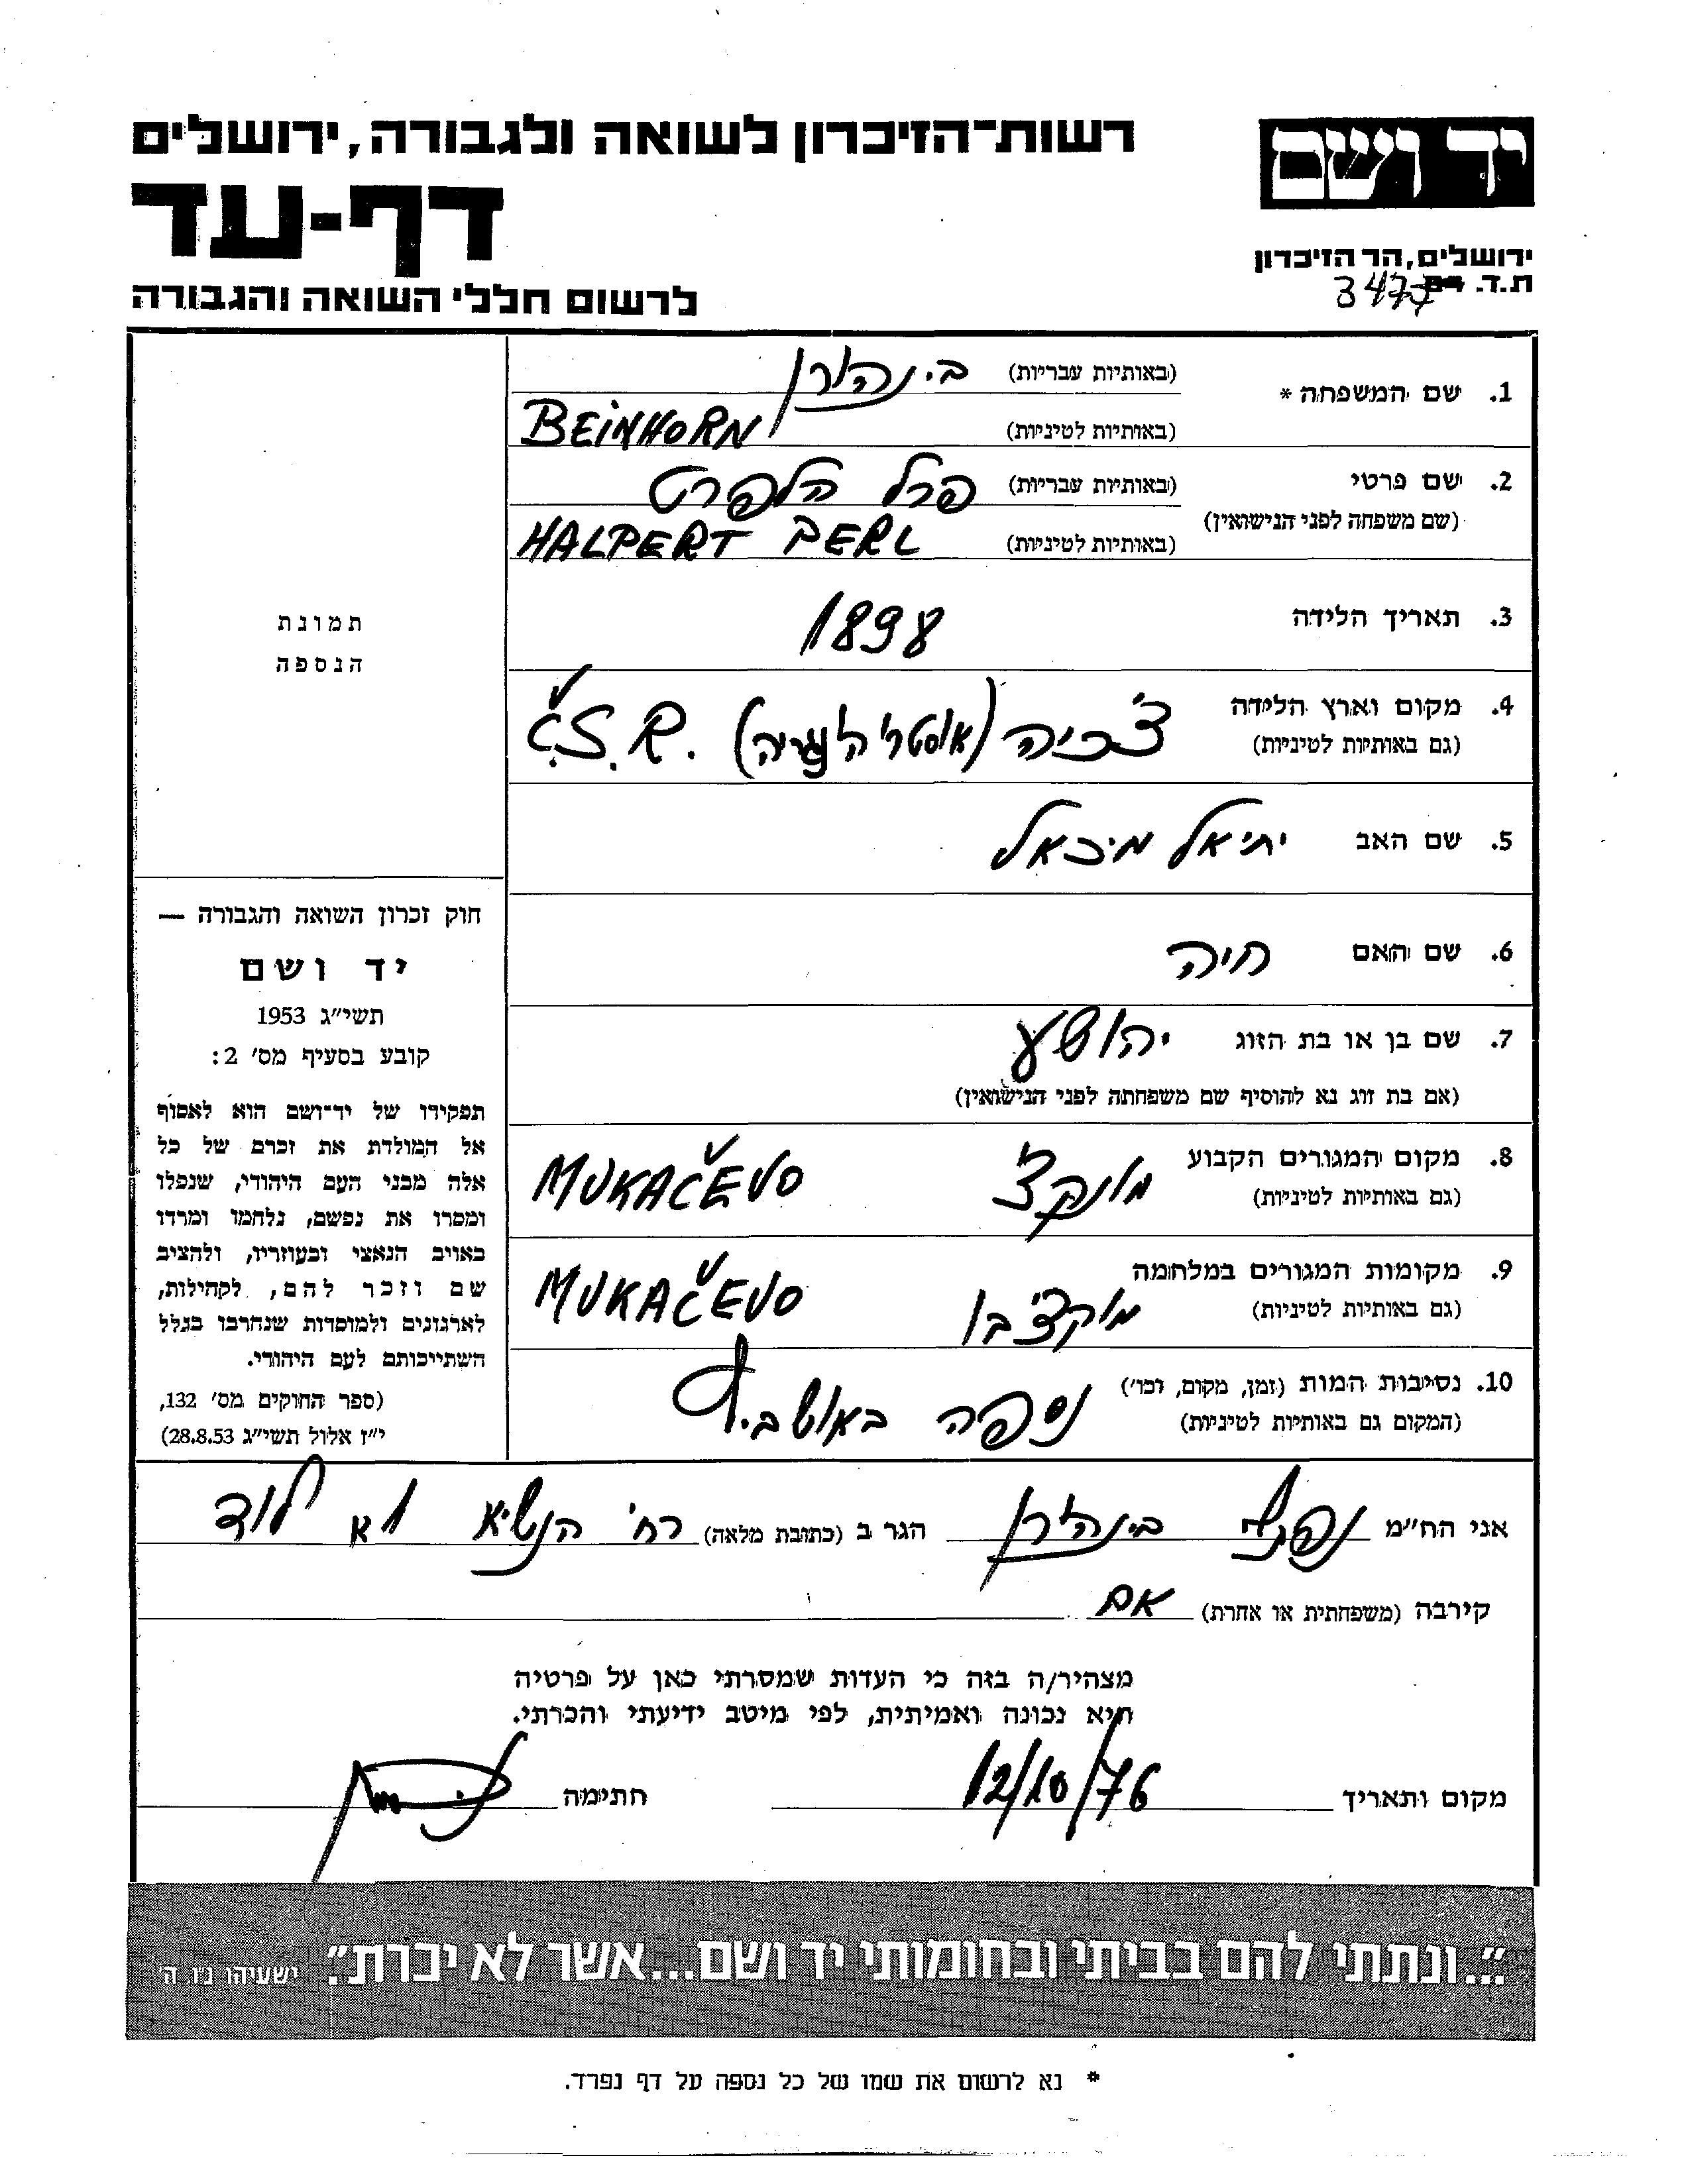 רשות־הזיכרון לשואה ולגבורה, ירושלים
יד ושם
דף-עד
ירושלים, הר הזיכרון
ת.ד. 3477
לרשום חללי השואה והגבורה
1. שם המשפחה * (באותיות עבריות) בינהורן
(באותיות לטיניות) BEINHORN
2. שם פרטי (באותיות עבריות) פרל הלפרט
(שם משפחה לפני הנישואין)
(באותיות לטיניות) HALPERT PERL
3. תאריך הלידה 1898
4. מקום וארץ הלידה צ'כיה (אוסטרו הונגריה) Č.S.R.
(גם באותיות לטיניות)
5. שם האב יחיאל מיכאל
6. שם האם חיה
7. שם בן או בת הזוג יהושע
(אם בת זוג נא להוסיף שם משפחתה לפני הנישואין)
8. מקום המגורים הקבוע מונקץ' MUKAČEVO
(גם באותיות לטיניות)
9. מקומות המגורים במלחמה מוקצ'בו MUKAČEVO
(גם באותיות לטיניות)
10. נסיבות המות (זמן, מקום, וכו') נספה באושביץ
(המקום גם באותיות לטיניות)
תמונת
הנספה
חוק זכרון השואה והגבורה —
יד ושם
תשי"ג 1953
קובע בסעיף מס' 2:
תפקידו של יד־ושם הוא לאסוף
אל המולדת את זכרם של כל
אלה מבני העם היהודי, שנפלו
ומסרו את נפשם, נלחמו ומרדו
באויב הנאצי ובעוזריו, ולהציב
שם וזכר להם, לקהילות,
לארגונים ולמוסדות שנחרבו בגלל
השתייכותם לעם היהודי.
(ספר החוקים מס' 132,
י"ז אלול תשי"ג 28.8.53)
אני הח"מ נפתלי בינהורן הגר ב (כתובת מלאה) רח' הנשיא לוד
קירבה (משפחתית או אחרת) אם
מצהיר/ה בזה כי העדות שמסרתי כאן על פרטיה
היא נכונה ואמיתית, לפי מיטב ידיעתי והכרתי.
מקום ותאריך 12/10/76 חתימה
"...ונתתי להם בביתי ובחומותי יד ושם...אשר לא יכרת". ישעיהו נ"ו ה'
* נא לרשום את שמו של כל נספה על דף נפרד.